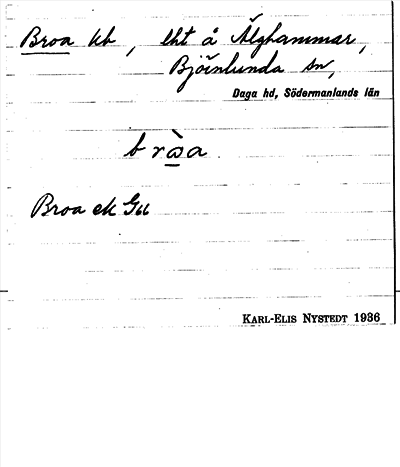 Broa kb, lht å Älghammar,
Björnlunda sn,
Daga hd, Södermanlands län
bròa
Broa ek G61
KARL-ELIS NYSTEDT 1936